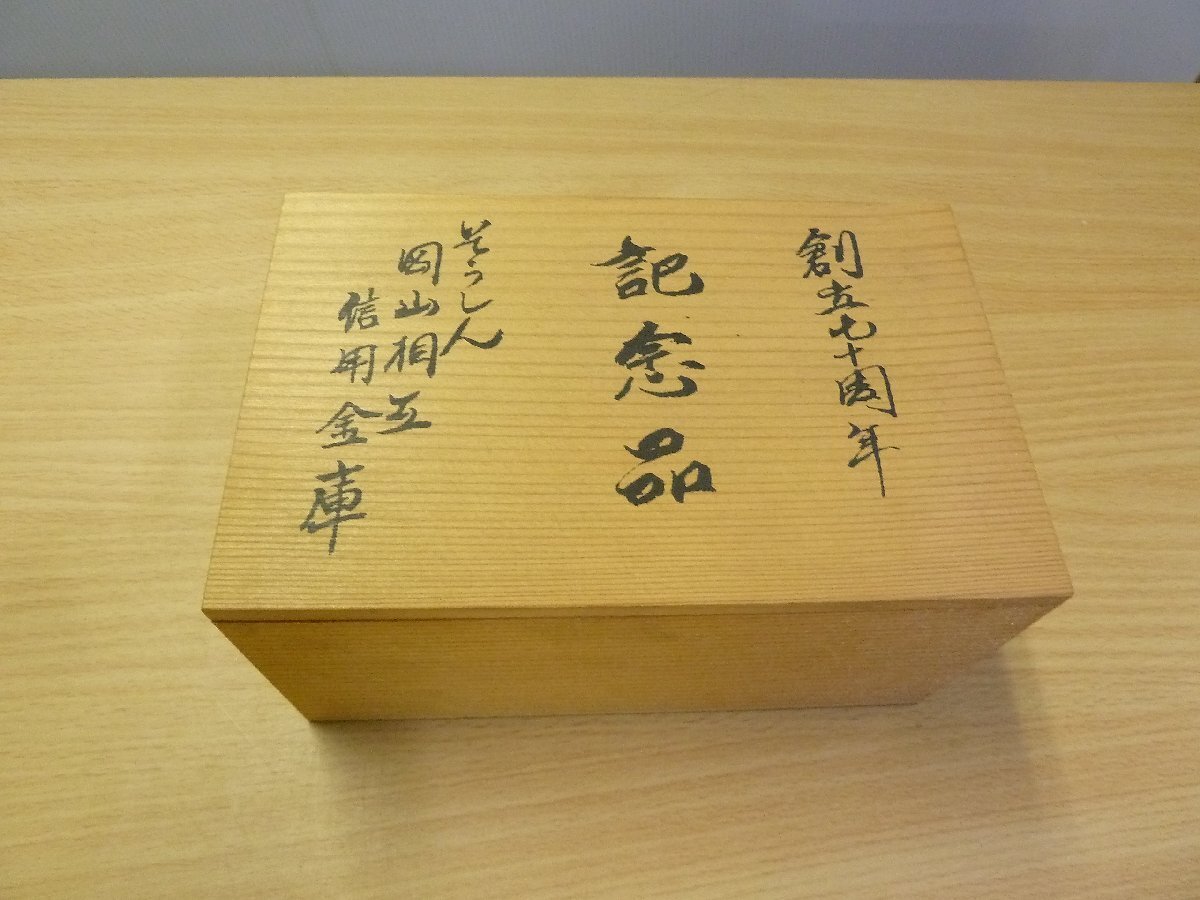 創立七十周年
記念品
そうしん
岡山相互
信用金庫